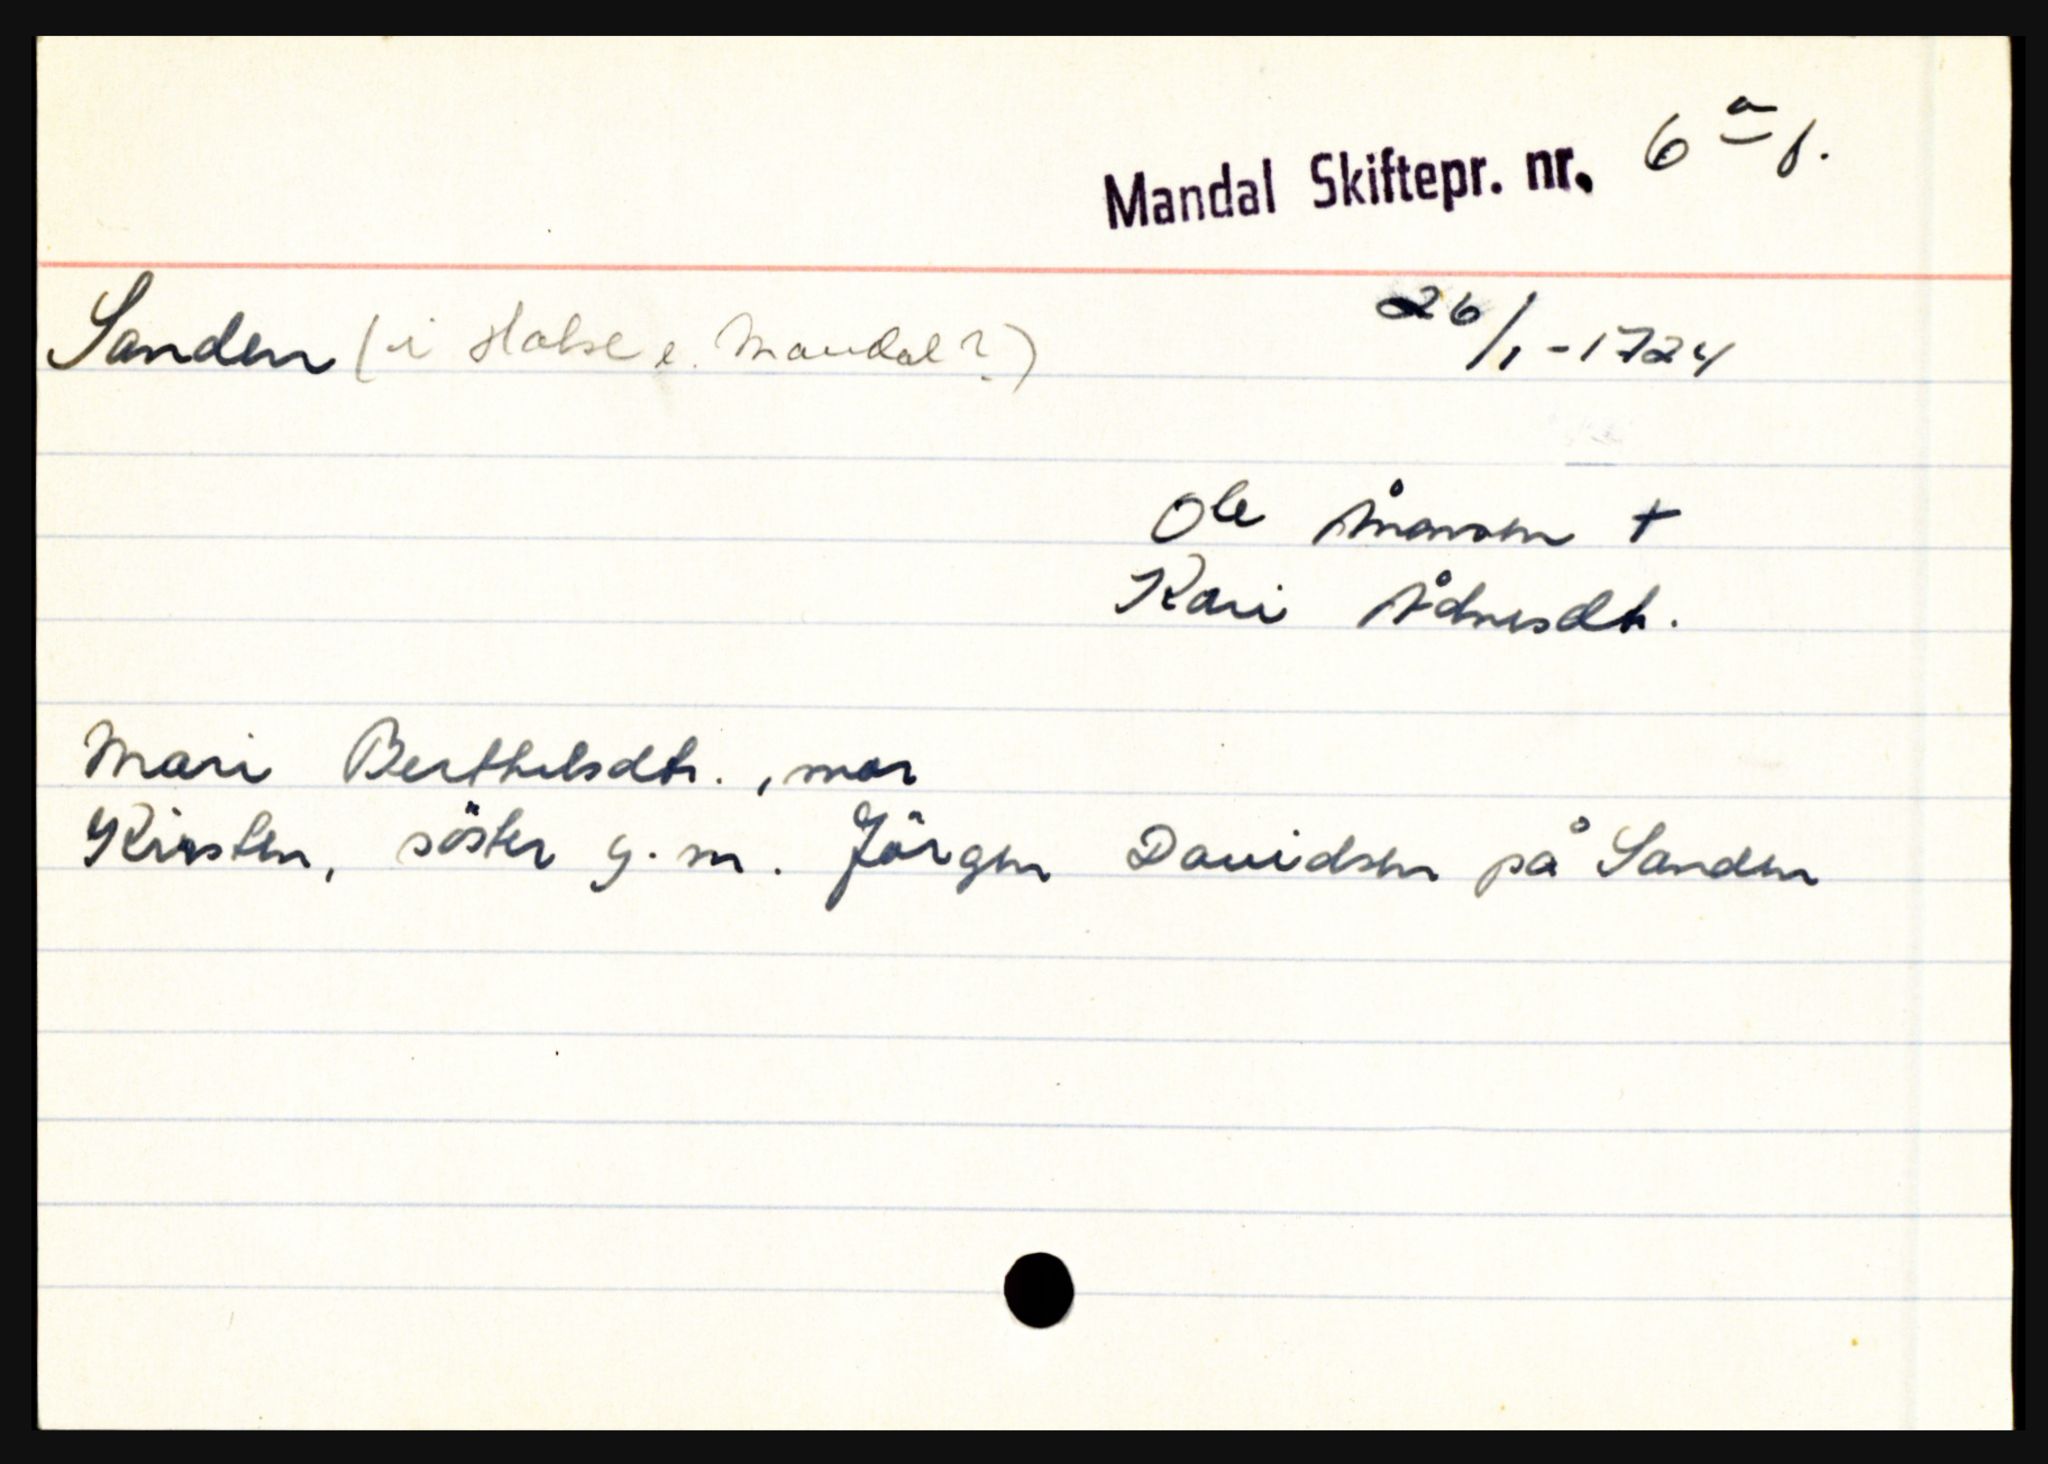 Mandal Skiftepr. nr. 6 a
Sanden (i Halse e. Mandal?) 26/1-1724
Ole Ånonsen +
Kari Ådnesdtr.
Mari Berthelsdtr., mor
Kirsten, söster g. m. Jörgen Davidsen på Sanden